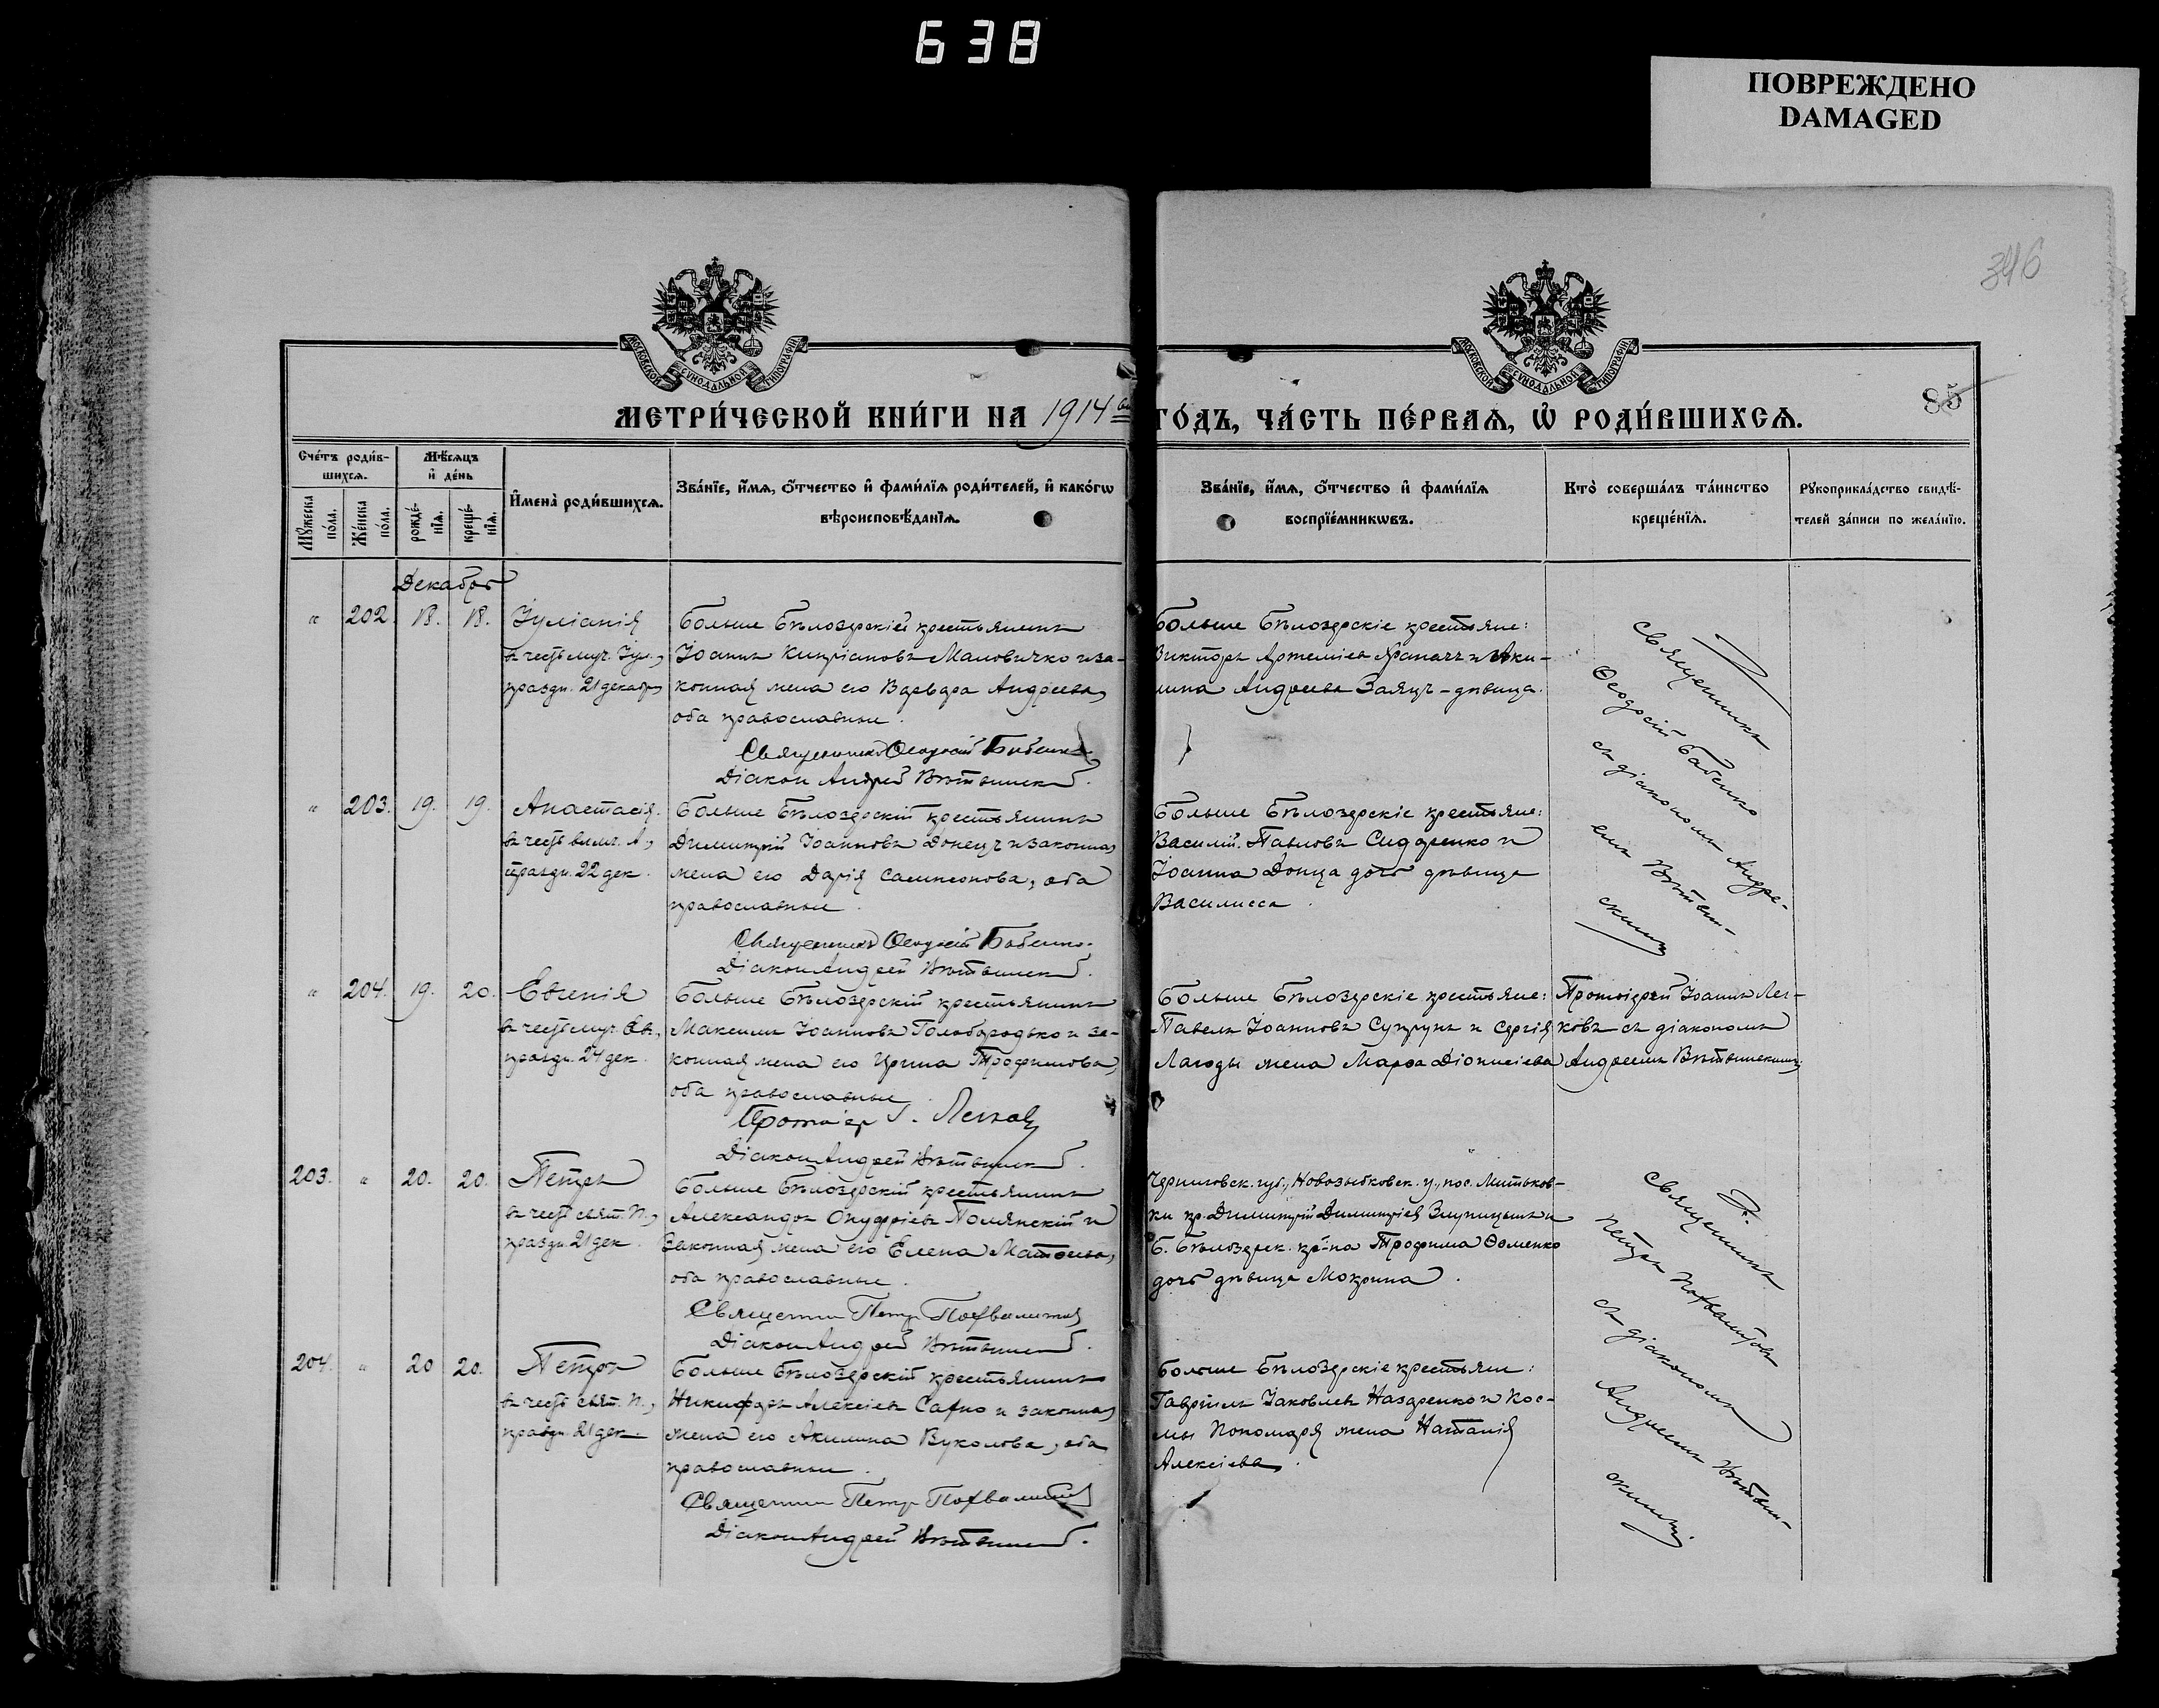 638
ПОВРЕЖДЕНО
DAMAGED
346
85
МОСКОВСКОЙ СѴНОДАЛЬНОЙ ТИПОГРАФІИ
МОСКОВСКОЙ СѴНОДАЛЬНОЙ ТИПОГРАФІИ
МЕТРИ́ЧЕСКОЙ КНИ́ГИ НА 1914 ГО́ДЪ, ЧА́СТЬ ПЕ́РВАѦ, Ѡ҆ РОДИ́ВШИХСѦ.
Сче́тъ роди́в-
шихсѧ.
Мѣ́сѧцъ
и҆ де́нь
Мꙋ́жеска
по́ла.
Же́нска
по́ла.
рожде́-
нїѧ.
креще́-
нїѧ.
И҆мена̀ роди́вшихсѧ.
Зва́нїе, и҆́мѧ, ѻ҆́тчество и҆ фами́лїѧ роди́телей, и҆ како́гѡ
вѣроисповѣ́данїѧ.
Зва́нїе, и҆́мѧ, ѻ҆́тчество и҆ фами́лїѧ
воспрїе́мникѡвъ.
Кто̀ соверша́лъ та́инство
креще́нїѧ.
Рꙋкоприкла́дство свидѣ́-
телей за́писи по жела́нїю.
Декабрь
" 202. 18. 18. Іуліанія
въ честь муч. Іул.,
праздн. 21 декабря
Больше Бѣлозерскій крестьянинъ
Іоаннъ Кипріановъ Маловичко и за-
конная жена его Варвара Андреева,
оба православные.
Священникъ Ѳеодосій Бабенко
Діаконъ Андрей
Больше Бѣлозерскіе крестьяне:
Викторъ Артеміевъ и Аки-
лина Андреева Заяцъ - дѣвица.
Священникъ
Ѳеодосій Бабенко
съ діакономъ Андре-
емъ
скимъ
" 203. 19. 19. Анастасія.
въ честь вмч. А.,
праздн. 22 дек.
Больше Бѣлозерскій крестьянинъ
Димитрій Іоанновъ Донецъ и законная
жена его Дарія Сампсонова, оба
православные.
Священникъ Ѳеодосій Бабенко.
Діаконъ Андрей
Больше Бѣлозерскіе крестьяне:
Василій Павловъ Сидоренко и
Іоанна Донца дочь дѣвица
Василисса.
" 204. 19. 20. Евгенія
въ честь муч. Ев.,
праздн. 24 дек.
Больше Бѣлозерскій крестьянинъ
Максимъ Іоанновъ Голобородько и за-
конная жена его Ирина Трофимова,
оба православные
Протоіер. І.
Діаконъ Андрей
Больше Бѣлозерскіе крестьяне:
Павелъ Іоанновъ Супрунъ и Сергія
Лагоды жена Марѳа Діонисіева
Протоіерей Іоаннъ
съ діакономъ
Андреемъ
203. " 20. 20. Петръ
въ честь свят. П.,
праздн. 21 дек.
Больше Бѣлозерскій крестьянинъ
Александръ Онуфріевъ Полянскій и
законная жена его Елена Матѳеева,
оба православные.
Священникъ Петръ Похвалитовъ
Діаконъ Андрей
Черниговск. губ., Новозыбковск. у., пос. Митьков-
ки кр. Димитрій Димитріевъ и
Б. Бѣлозерск. кр-на Трофима Ѳоменко
дочь дѣвица Мокрина.
Священникъ
Петръ Похвалитовъ
съ діакономъ
Андреемъ
скимъ.
204. " 20 20. Петръ
въ честь свят. П.,
праздн. 21 дек.
Больше Бѣлозерскій крестьянинъ
Никифоръ Алексіевъ Сахно и законная
жена его Акилина Вуколова, оба
православные.
Священникъ Петръ Похвалитовъ
Діаконъ Андрей
Больше Бѣлозерскіе крестьяне:
Гавріилъ Іаковлевъ Назаренко и Кос-
мы Пономаря жена Наталія
Алексіева.